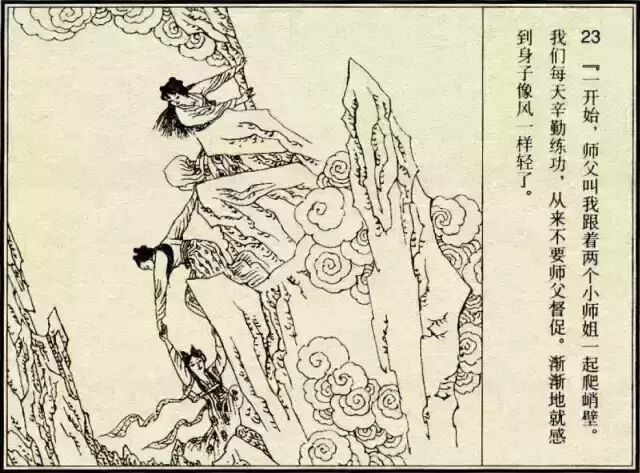 23 『一开始，师父叫我跟着两个小师姐一起爬峭壁。
我们每天辛勤练功，从来不要师父督促。渐渐地就感
到身子像风一样轻了。